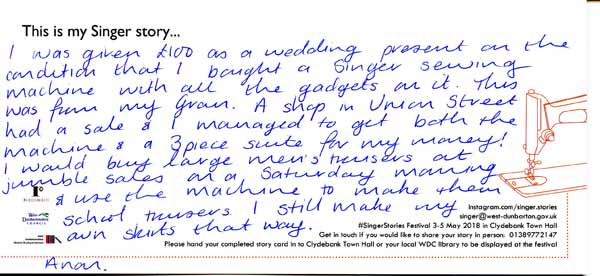 This is my Singer story...
I was given £100 as a wedding present on the
condition that I bought a Singer sewing
machine with all the gadgets on it. This
was from my Gran. A shop in Union Street
had a sale & I managed to get both the
machine & a 3 piece suite for my money!
I would buy large men's trusers at
jumble sales on a Saturday morning
& use the machine to make them
school trusers I still make my
own skirts that way.
Anon.
Instagram.com/singer.stories
singer@west-dunbarton.gov.uk
#SingerStories Festival 3-5 May 2018 in Clydebank Town Hall
Get in touch if you would like to share your story in person: 01389772147
Please hand your completed story card in to Clydebank Town Hall or your local WDC library to be displayed at the festival